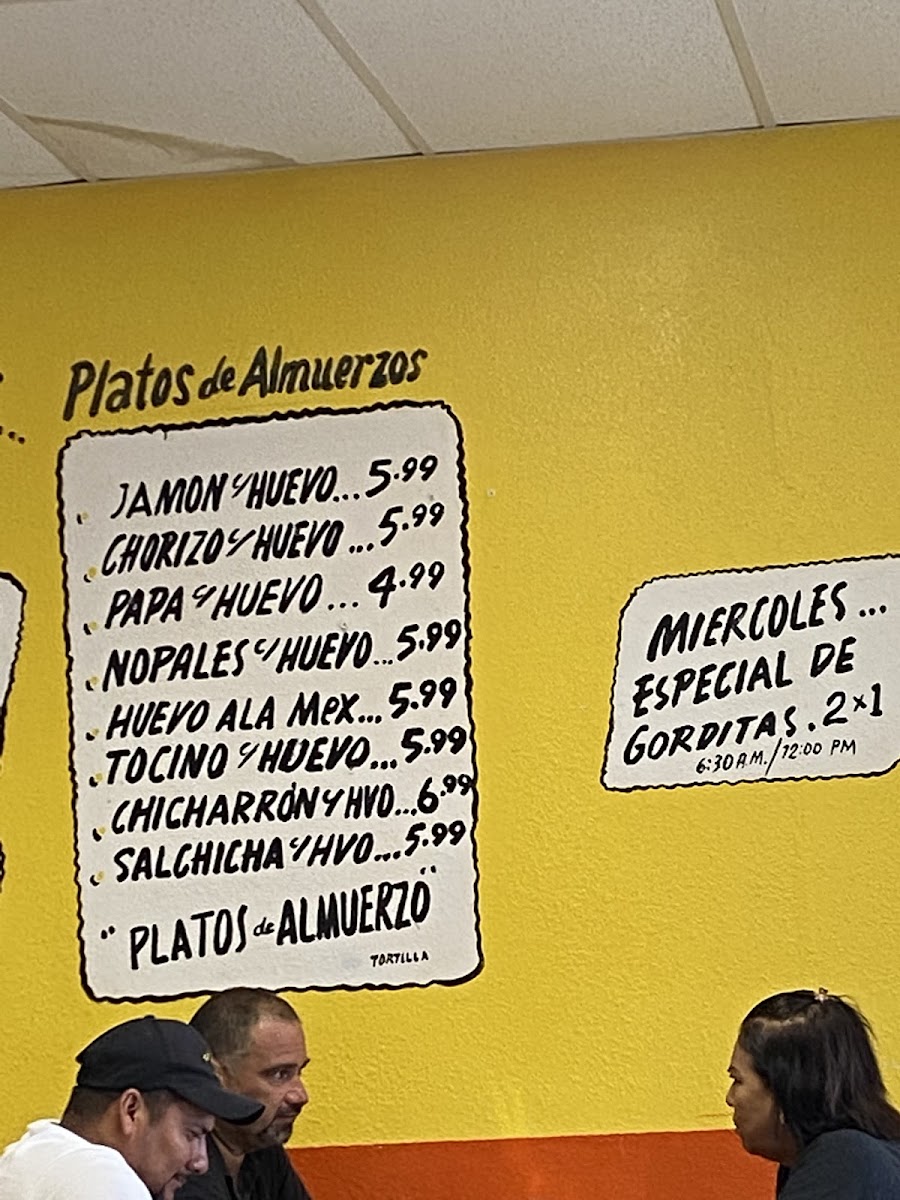 Platos de Almuerzos
JAMON c/ HUEVO... 5.99
CHORIZO c/ HUEVO... 5.99
PAPA c/ HUEVO... 4.99
NOPALES c/ HUEVO... 5.99
HUEVO ALA Mex... 5.99
TOCINO c/ HUEVO... 5.99
CHICHARRÓN Y HVO... 6.99
SALCHICHA c/ HVO... 5.99
"PLATOS de ALMUERZO"
TORTILLA
MIERCOLES...
ESPECIAL DE
GORDITAS. 2x1
6:30 A.M./12:00 PM